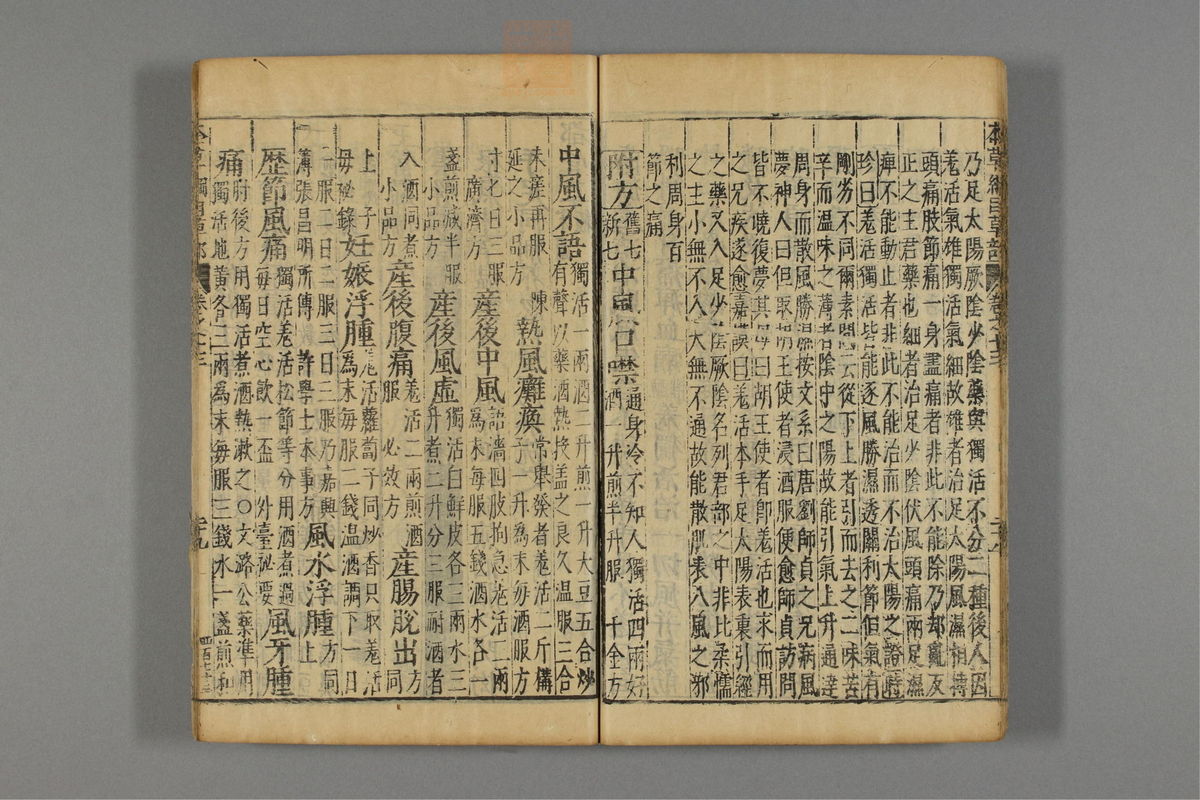 乃足太陽厥陰少陰藥與獨活不分二種後人因
羗活氣雄獨活氣細故雄者治足太陽風濕相搏
頭痛肢節痛一身盡痛者非此不能除乃却亂反
正之主君藥也細者治足少陰伏風頭痛兩足濕
痺不能動止者非此不能治而不治太陽之證時
珍曰羗活獨活皆能逐風勝濕透關利節但氣有
剛劣不同爾素問云從下上者引而去之二味苦
辛而温味之薄者陰中之陽故能引氣上升通達
周身而散風勝濕按文系曰唐劉師貞之兄病風
夢神人曰但取胡王使者浸酒服便愈師貞訪問
皆不曉復夢其母曰胡王使者卽羗活也求而用
之兄疾遂愈嘉謨曰羗活本手足太陽表裏引經
之藥又入足少陰厥陰名列君部之中非比柔懦
之主小無不入大無不通故能散肌表八風之邪
利周身百
節之痛
附方
舊七
新七
中風口噤
通身冷不知人獨活四兩好
酒一升煎半升服 千金方
中風不語
獨活一兩酒二升煎一升大豆五合炒
有聲以藥酒熱投盖之良久温服三合
未瘥再服 陳
延之小品方
熱風癱瘓
常舉發者羗活二斤構
子一升爲末每酒服方
寸匕日三服
廣濟方
產後中風
語濇四肢拘急羗活三兩
爲末每服五錢酒水各一
盞煎減半服
小品方
產後風虛
獨活白鮮皮各三兩水三
升煮二升分三服耐酒者
入酒同煮
小品方
產後腹痛
羗活二兩煎酒
服 必效方
產腸脫出
方同
上 子
母秘錄
妊娠浮腫
羗活蘿蔔子同炒香只取羗活
爲末每服二錢温酒調下一日
一服二日二服三日三服乃嘉興
薄張昌明所傳 許學士本事方
風水浮腫
方同
上
歷節風痛
獨活羗活松節等分用酒煮過
每日空心飲一盃 外臺秘要
風牙腫
痛
肘後方用獨活煮酒熱漱之○文潞公藥準用
獨活地黃各三兩爲末每服三錢水一盞煎和
本草綱目草部
卷之十三